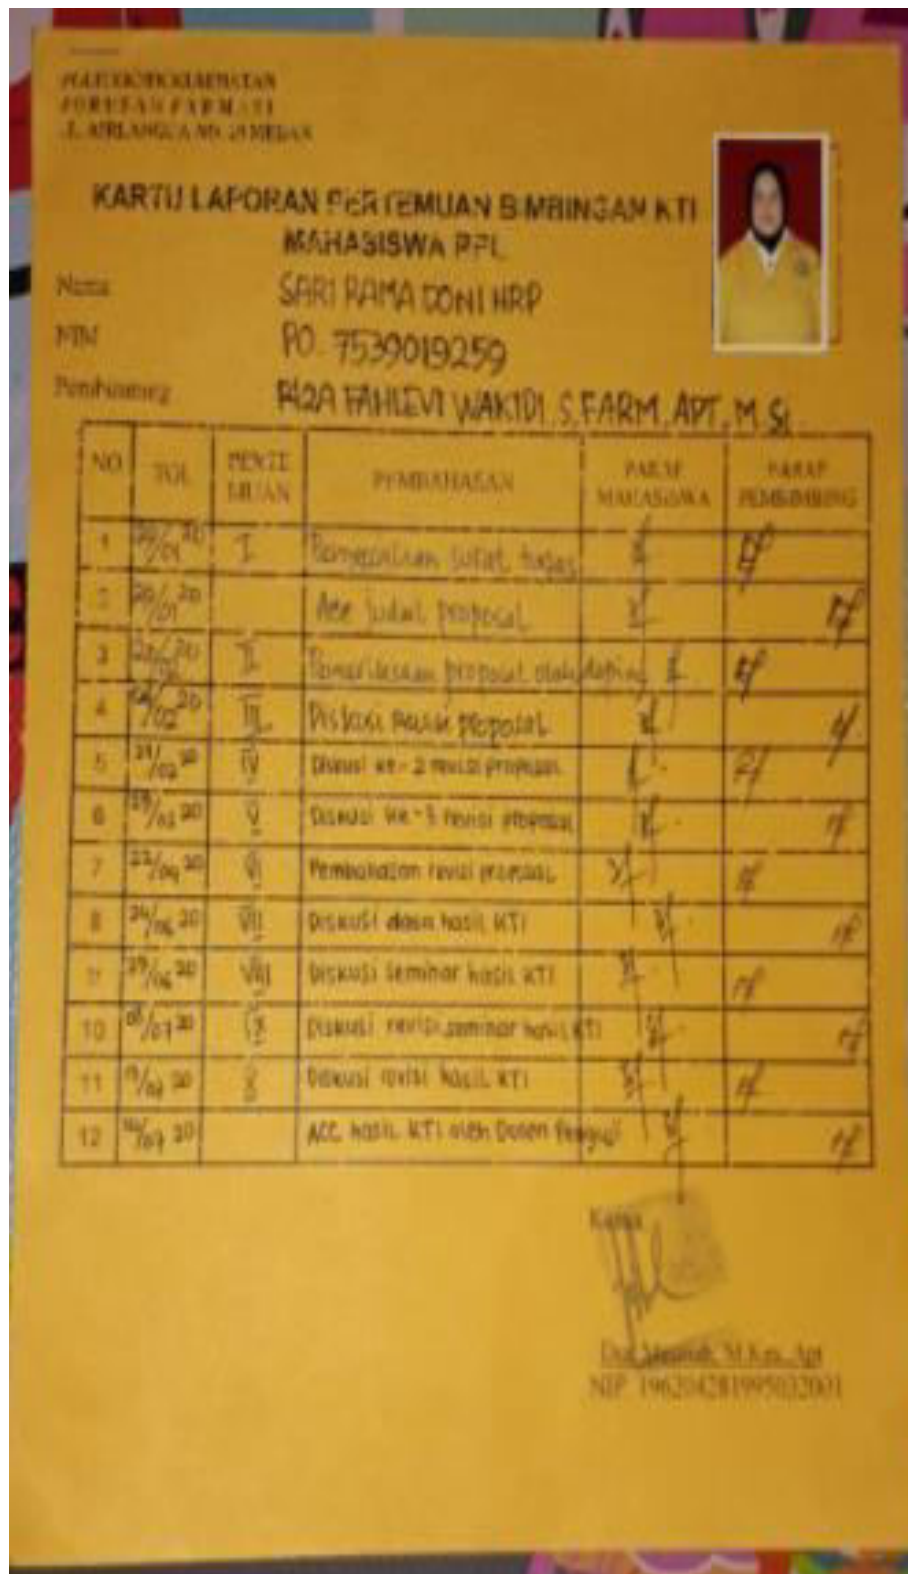 POLITEKNIK KESEHATAN
JURUSAN FARMASI
JL. AIRLANGGA NO. 20 MEDAN
KARTU LAPORAN PERTEMUAN BIMBINGAN KTI
MAHASISWA RPL
Nama SARI RAMA DONI HRP
NIM PO. 7539019259
Pembimbing RIZA FAHLEVI WAKIDI. S.FARM, APT, M.Si
NO TGL PERTE MUAN PEMBAHASAN PARAF MAHASISWA PARAF PEMBIMBING
1 I surat tugas
2 20/01 20 Acc judul proposal
3 II Pemeriksaan proposal oleh doping
4 III Diskusi proposal
5 IV Diskusi ke-2 revisi proposal
6 V Diskusi ke-3 revisi proposal
7 VI Pembahasan revisi proposal
8 24/06 20 VII Diskusi hasil KTI
9 29/06 20 VIII Diskusi seminar hasil KTI
10 IX Diskusi revisi seminar hasil KTI
11 X Diskusi revisi hasil KTI
12 ACC hasil KTI oleh Dosen Penguji
Ketua
M.Kes, Apt
NIP 196204281995032001